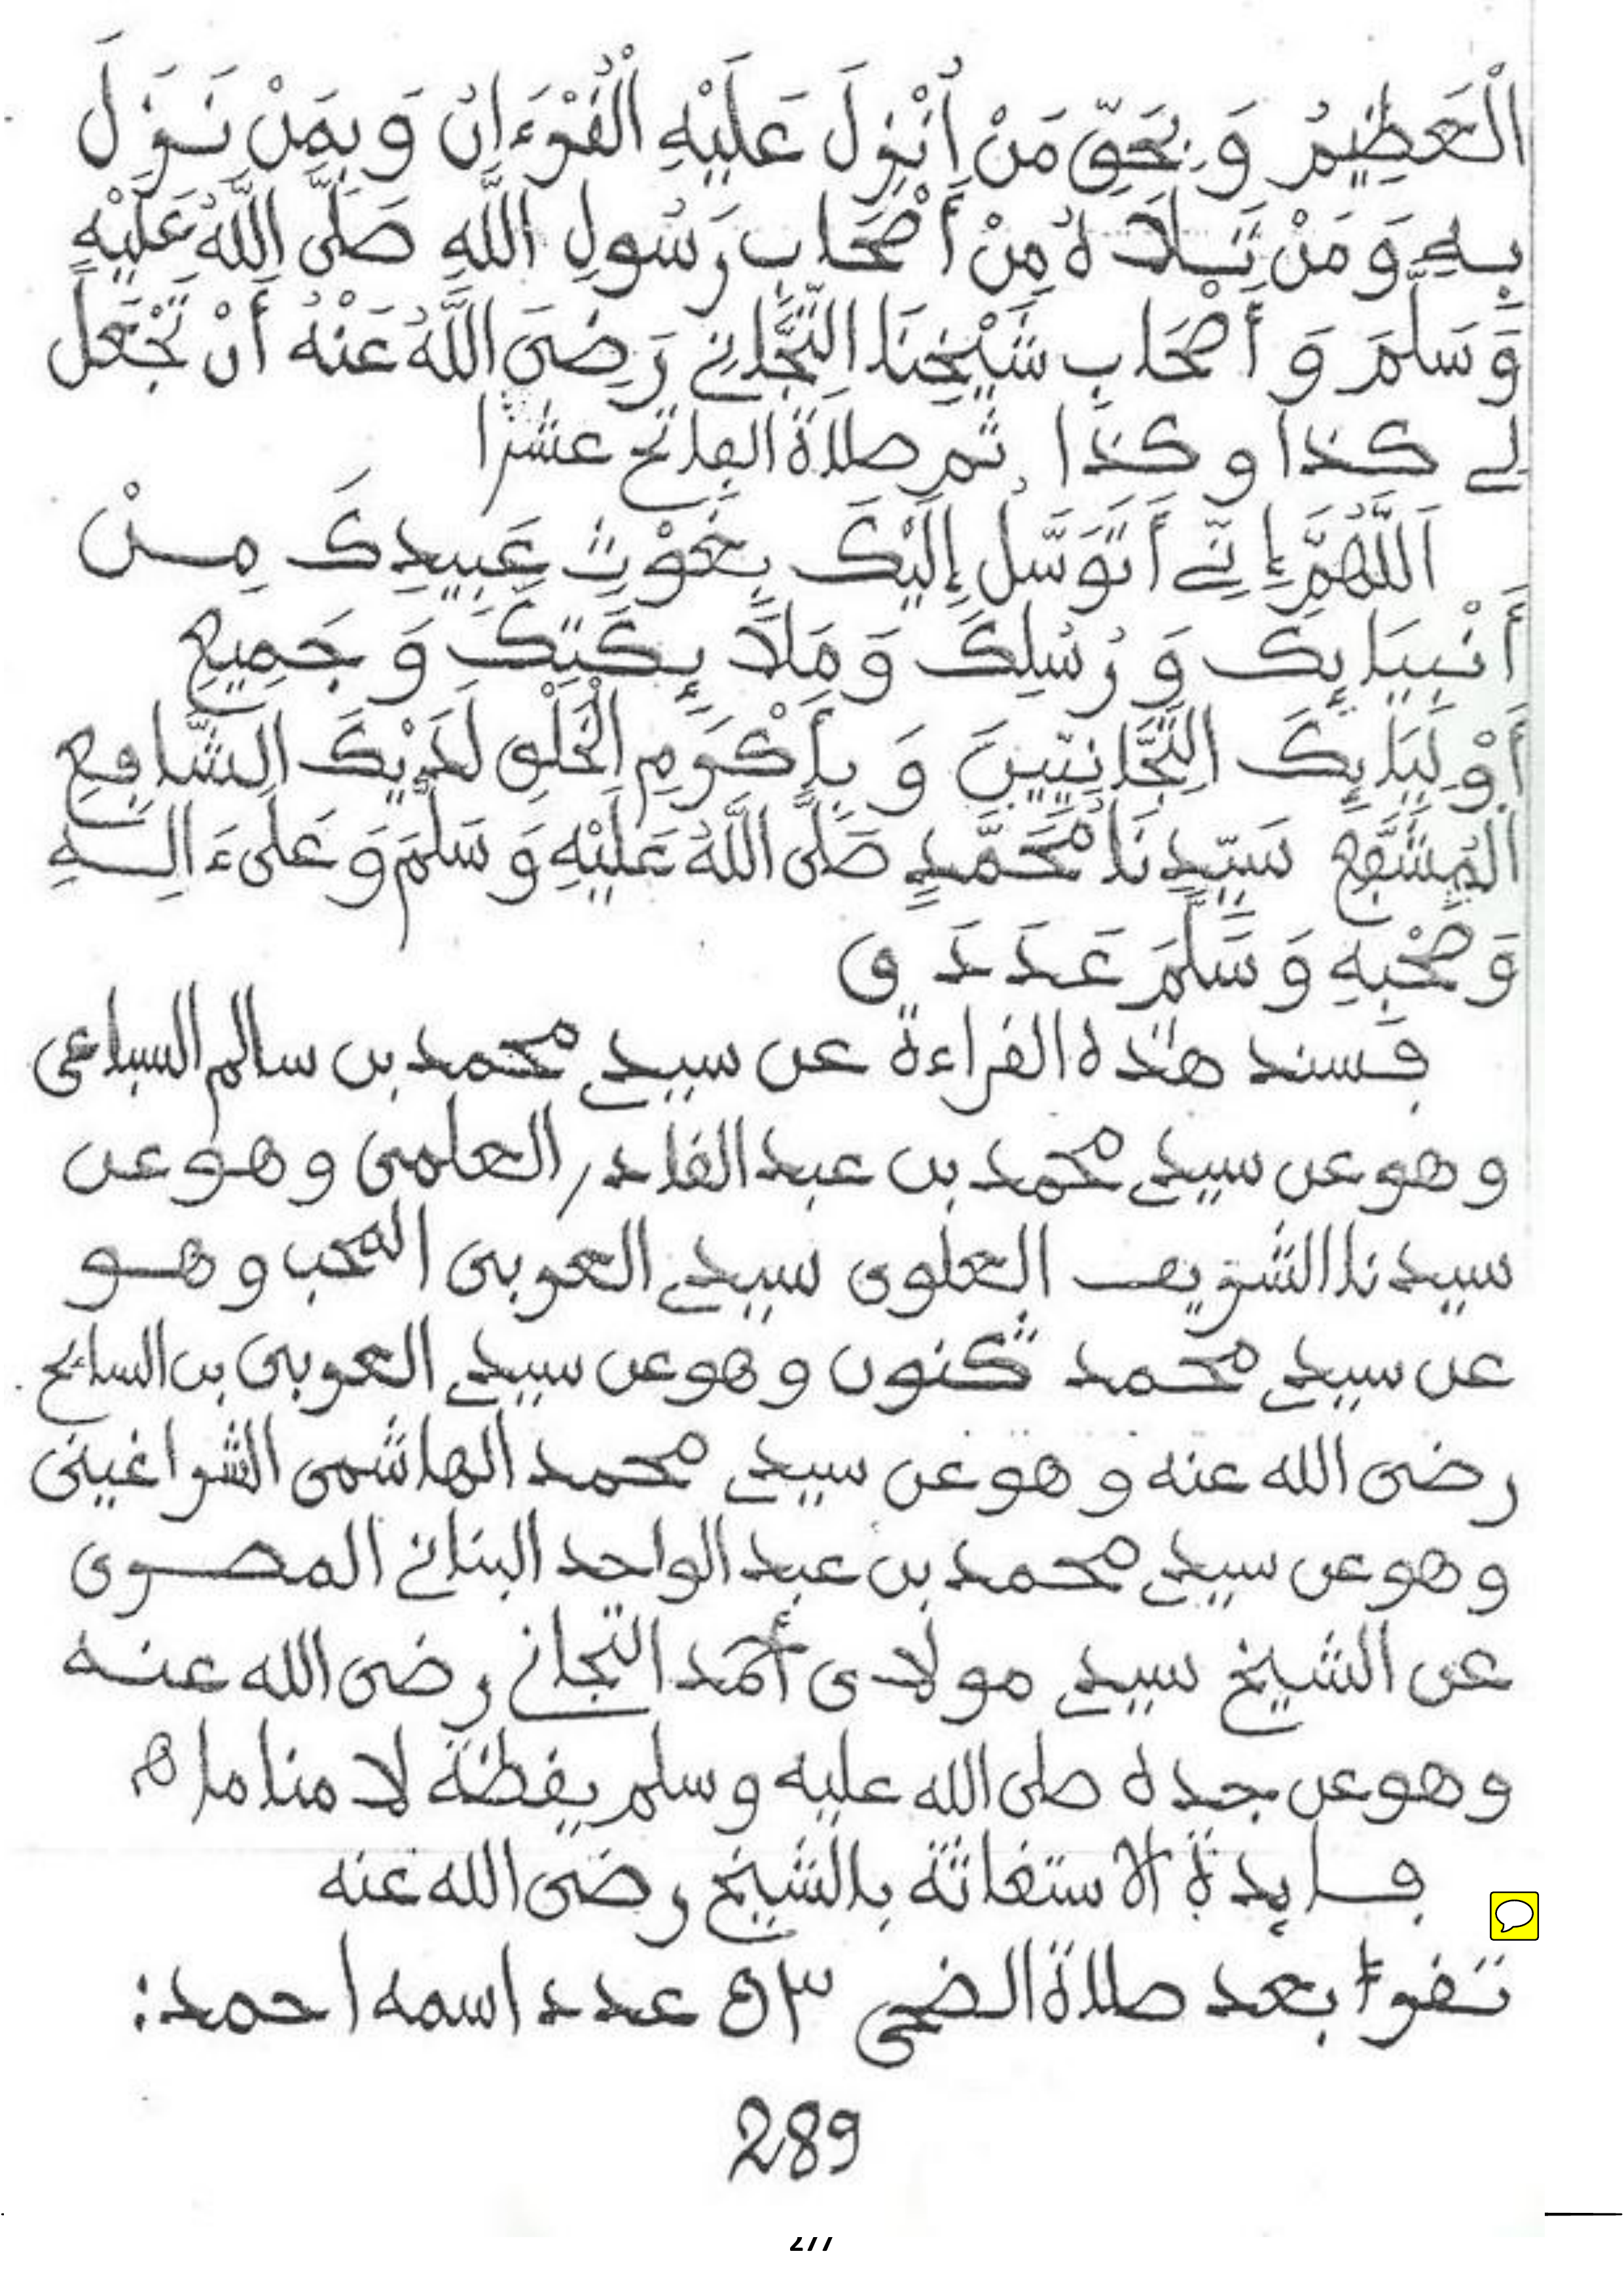 الْعَظِيمُ وَ بِحَقِّ مَنْ أُنْزِلَ عَلَيْهِ الْقُرْءَانُ وَ بِمَنْ نَزَلَ
بِهِ وَ مَنْ تَلَاهُ مِنْ أَصْحَابِ رَسُولِ اللَّهِ صَلَّى اللَّهُ عَلَيْهِ
وَ سَلَّمَ وَ أَصْحَابِ شَيْخِنَا التِّجَّانِي رَضِىَ اللَّهُ عَنْهُ أَنْ تَجْعَلَ
لى كذا و كذا ثم صلاة الفاتح عشرا
اَللَّهُمَّ إِنِّى أَتَوَسَّلُ إِلَيْكَ بِغَوْثِ عَبِيدِكَ مِنْ
أَنْبِيَايِكَ وَ رُسُلِكَ وَ مَلَايِكَتِكَ وَ جَمِيعِ
أَوْلِيَايِكَ التِّجَّانِيِّينَ وَ بِأَكْرَمِ الْخَلْقِ لَدَيْكَ الشَّافِعِ
الْمُشَفَّعِ سَيِّدِنَا مُحَمَّدٍ صَلَّى اللَّهُ عَلَيْهِ وَ سَلَّمَ وَ عَلَىءَالِـهِ
وَ صَحْبِهِ وَ سَلَّمَ عَدَدَ ق
فسند هذه القراءة عن سيدى محمد بن سالم السباعى
و هو عن سيدى محمد بن عبد القادر العلمى و هو عن
سيدنا الشريف العلوى سيدى العربى المحب و هو
عن سيدى محمد كنون و هو عن سيدى العربى بن السائح
رضى الله عنه و هو عن سيدى محمد الهاشمى الشراغينى
و هو عن سيدى محمد بن عبد الواحد البنانى المصرى
عن الشيخ سيدى مولاى أحمد التجانى رضى الله عنه
و هو عن جده صلى الله عليه و سلم يقظة لا مناما ه
فايدة الاستغاثة بالشيخ رضى الله عنه
تقرأ بعد صلاة الضحى ٥٣ عدد اسمه احمد:
289
277